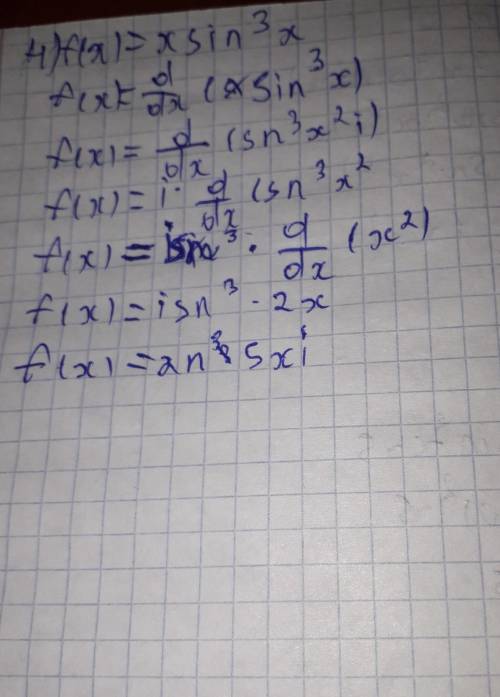 4) f(x) = x sin³ x
f(x) = d/dx (x sin³ x)
f(x) = d/dx (sn³ x² i)
f(x) = i · d/dx (sn³ x²
f(x) = isn³ · d/dx (x²)
f(x) = isn³ · 2x
f(x) = 2n³ sxi